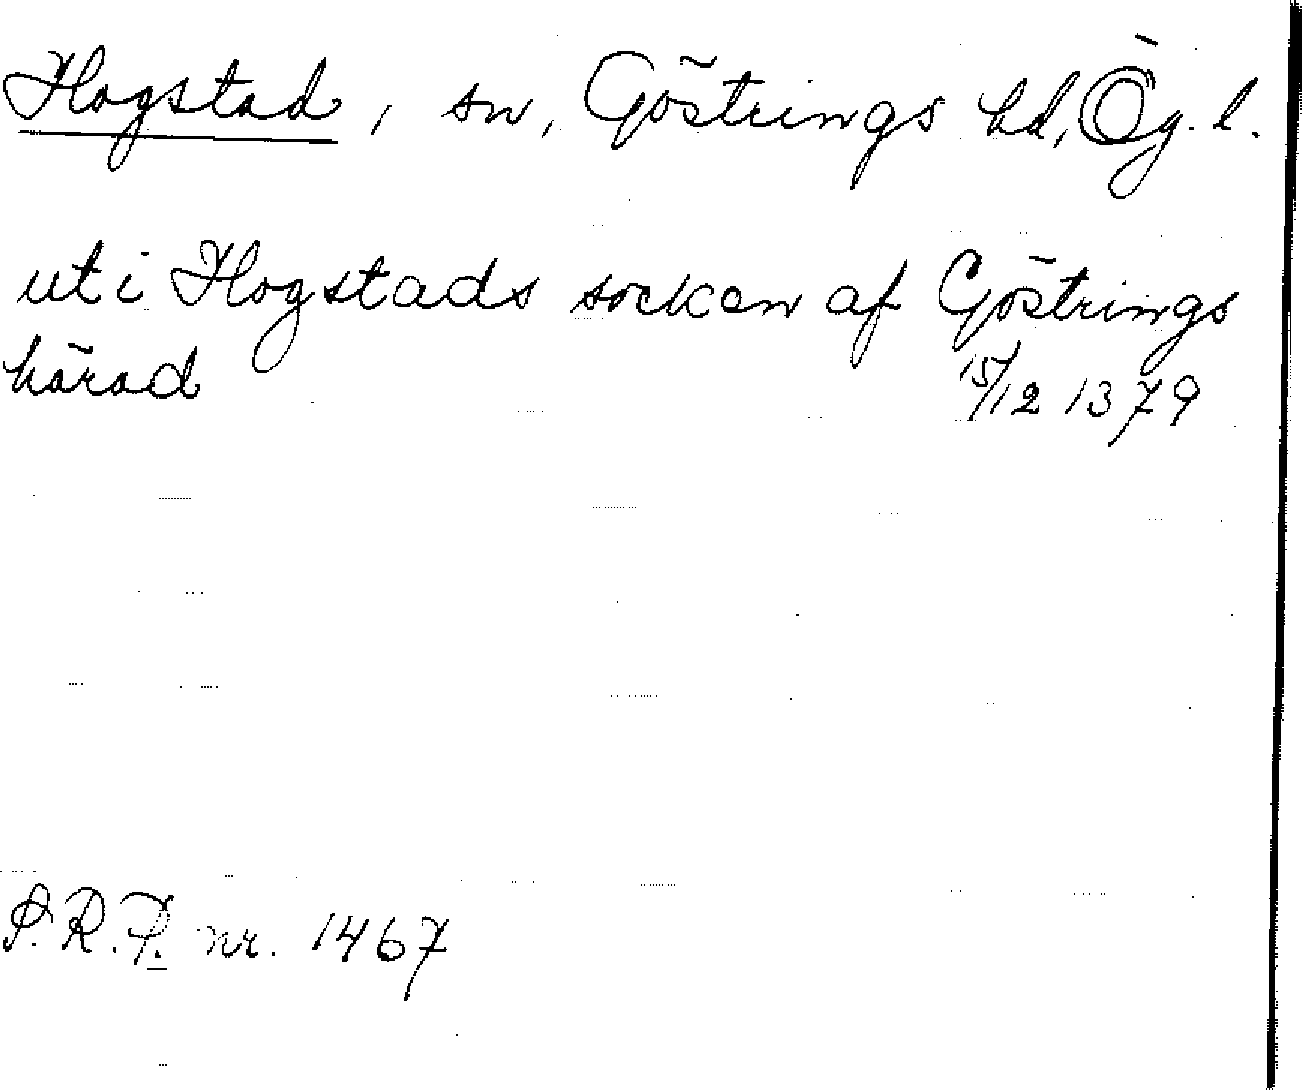 Hogstad, sn, Göstrings hd, Ög. l.
ut i Hogstads socken af Göstrings
härad 15/12 1379
S.R.P. nr. 1467